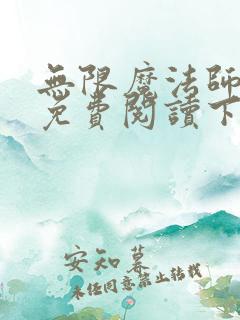 無限魔法師
免費閱讀下
安知暮
未经同意禁止转载